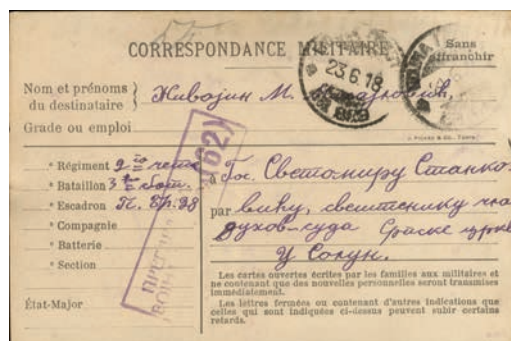 CORRESPONDANCE MILITAIRE
Sans
affranchir
Nom et prénoms
du destinataire
Живојин М.
Grade ou emploi
J. PICARD & CO., TUNIS
23.6.18
(62)
* Régiment 9 то чета
* Bataillon 3 ћи бат.
* Escadron П. Бр. 98
* Compagnie
* Batterie
* Section
État-Major
à Гос. Светомиру Станко-
par вићу, свештенику
духов. суда Српске цркве
у Солун.
Les cartes ouvertes écrites par les familles aux militaires et
ne contenant que des nouvelles personnelles seront transmises
immédiatement.
Les lettres fermées ou contenant d'autres indications que
celles qui sont indiquées ci-dessus peuvent subir certains
retards.